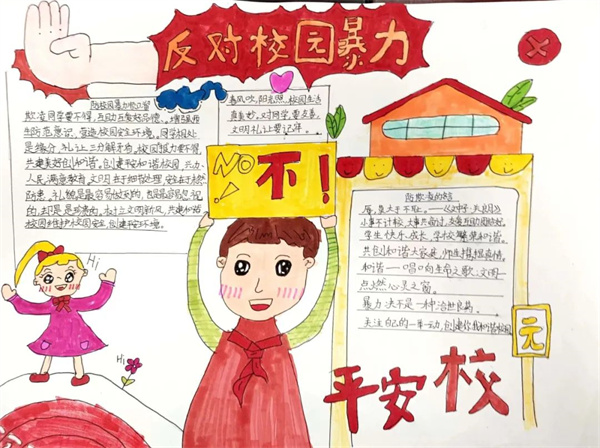 反对校园暴力
防校园暴力标识语
欺凌同学要不得，互助互爱好品德。增强师
生防范意识，营造校园安全环境。同学相处
是缘分，礼让三分解矛盾。校园暴力要不得，
共建美好创和谐。创建平安和谐校园，
人民满意教育。文明在于细节处理，安全在于
防患。礼貌是最容易做到的，也是最容易忽视
的，却是最珍贵的。树立文明新风，共建和谐
校园维护校园安全，创建平安环境。
春风吹，阳光照，校园生活
真美妙，对同学，要友善，
文明礼让要记牢。
NO!
不！
Hi
Hi
防欺凌的名言
辱，莫大于不耻。
小事不计较，大事共商讨，友爱互助陪你好。
学生快乐成长，学校繁荣和谐。
共创和谐大家庭，师生携手情。
和谐——唱响生命之歌；文明——
点燃心灵之窗。
暴力决不是一种治世良药。
关注自己的一举一动，创建你我和谐校园。
平安校
元